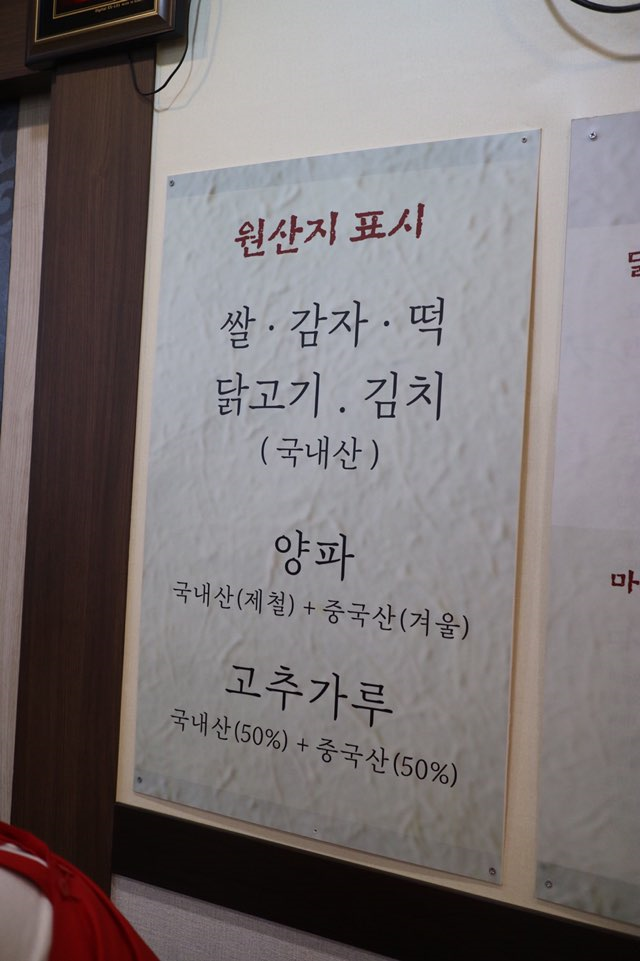 원산지 표시
쌀 · 감자 · 떡
닭고기 . 김치
( 국내산 )
양파
국내산(제철) + 중국산(겨울)
고추가루
국내산(50%) + 중국산(50%)
마